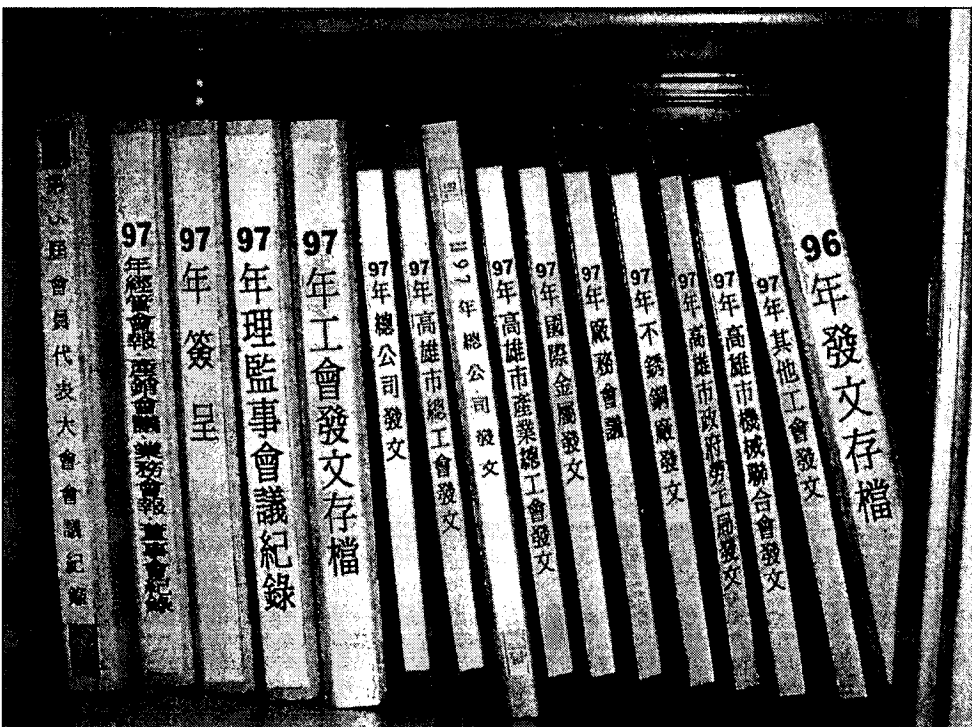 屆會員代表大會會議紀錄
97年經管會報 產銷會議 業務會報 董事會紀錄
97年簽呈
97年理監事會議紀錄
97年工會發文存檔
97年總公司發文
97年高雄市總工會發文
97年總公司發文
97年高雄市產業總工會發文
97年國際金屬發文
97年廠務會議
97年不銹鋼廠發文
97年高雄市政府勞工局發文
97年高雄市機械聯合會發文
97年其他工會發文
96年發文存檔